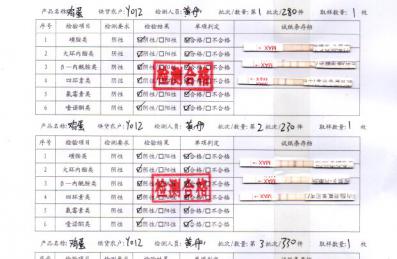 产品名称:鸡蛋 供货农户:Y012 检测人员: 批次/数量:第1批次/280枚 取样数量:1 枚
序号 检验项目 检测要求 检验结果 单项判定 试纸条存档
1 磺胺类 阴性 ☑阴性/□阳性 ☑合格/□不合格
2 大环内酯类 阴性 ☑阴性/□阳性 ☑合格/□不合格
3 β-内酰胺类 阴性 ☑阴性/□阳性 ☑合格/□不合格
4 四环素类 阴性 ☑阴性/□阳性 ☑合格/□不合格
5 氟苯素类 阴性 ☑阴性/□阳性 ☑合格/□不合格
6 喹诺酮类 阴性 ☑阴性/□阳性 ☑合格/□不合格
检测合格
MAX
MAX
MAX
产品名称:鸡蛋 供货农户:Y012 检测人员: 批次/数量:第2批次/230枚 取样数量:1 枚
序号 检验项目 检测要求 检验结果 单项判定 试纸条存档
1 磺胺类 阴性 ☑阴性/□阳性 ☑合格/□不合格
2 大环内酯类 阴性 ☑阴性/□阳性 ☑合格/□不合格
3 β-内酰胺类 阴性 ☑阴性/□阳性 ☑合格/□不合格
4 四环素类 阴性 ☑阴性/□阳性 ☑合格/□不合格
5 氟苯素类 阴性 ☑阴性/□阳性 ☑合格/□不合格
6 喹诺酮类 阴性 ☑阴性/□阳性 ☑合格/□不合格
检测合格
MAX
MAX
MAX
产品名称:鸡蛋 供货农户:Y012 检测人员: 批次/数量:第3批次/350枚 取样数量:1 枚
序号 检验项目 检测要求 检验结果 单项判定 试纸条存档